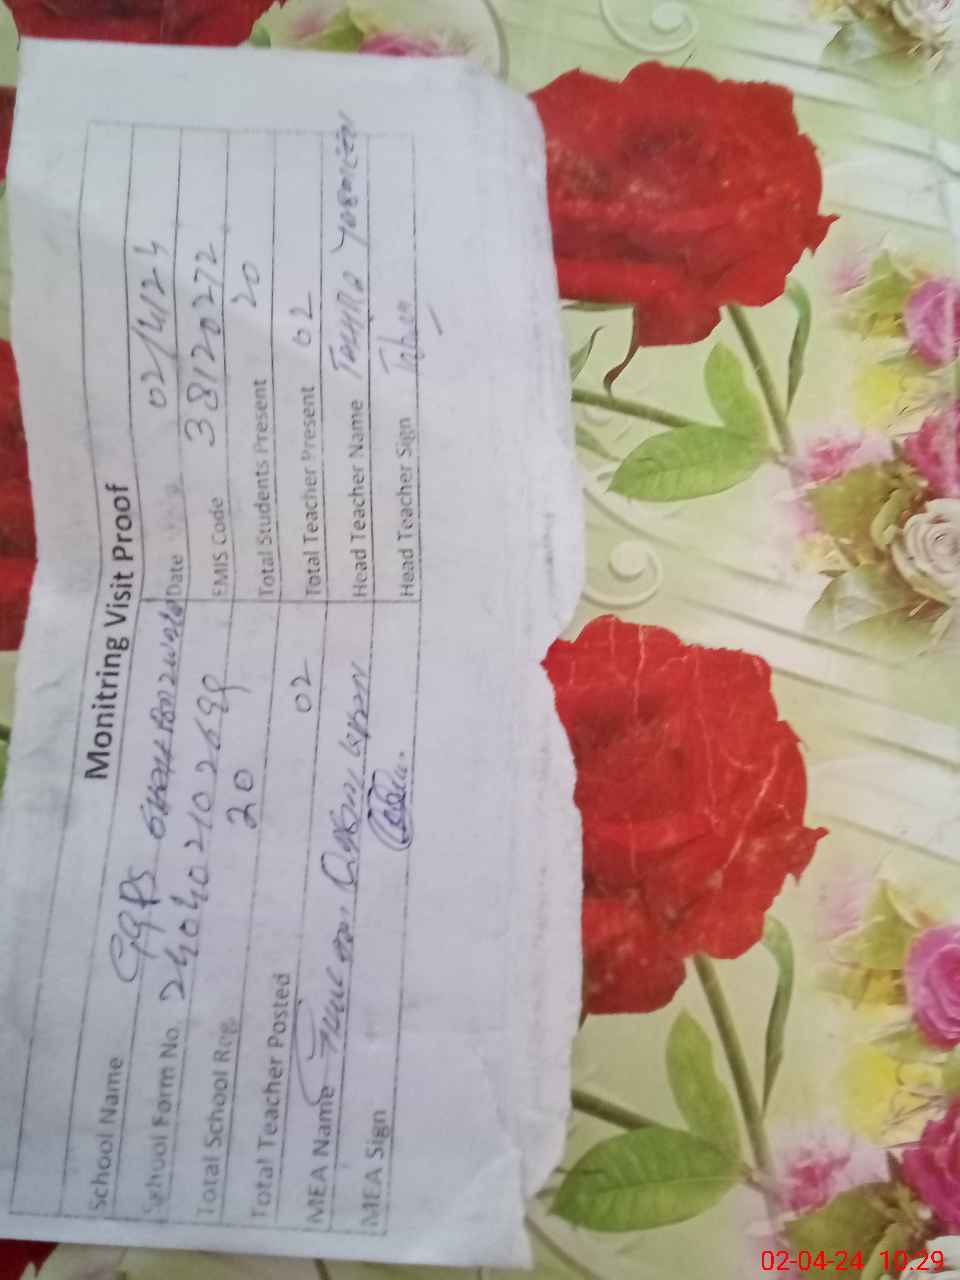 Monitring Visit Proof
School Name GGPS Date 02/4/24
School Form No. 240402102699 EMIS Code 38120272
Total School Reg. 20 Total Students Present 20
Total Teacher Posted 02 Total Teacher Present 02
MEA Name Head Teacher Name
MEA Sign Head Teacher Sign
02-04-24 10:29